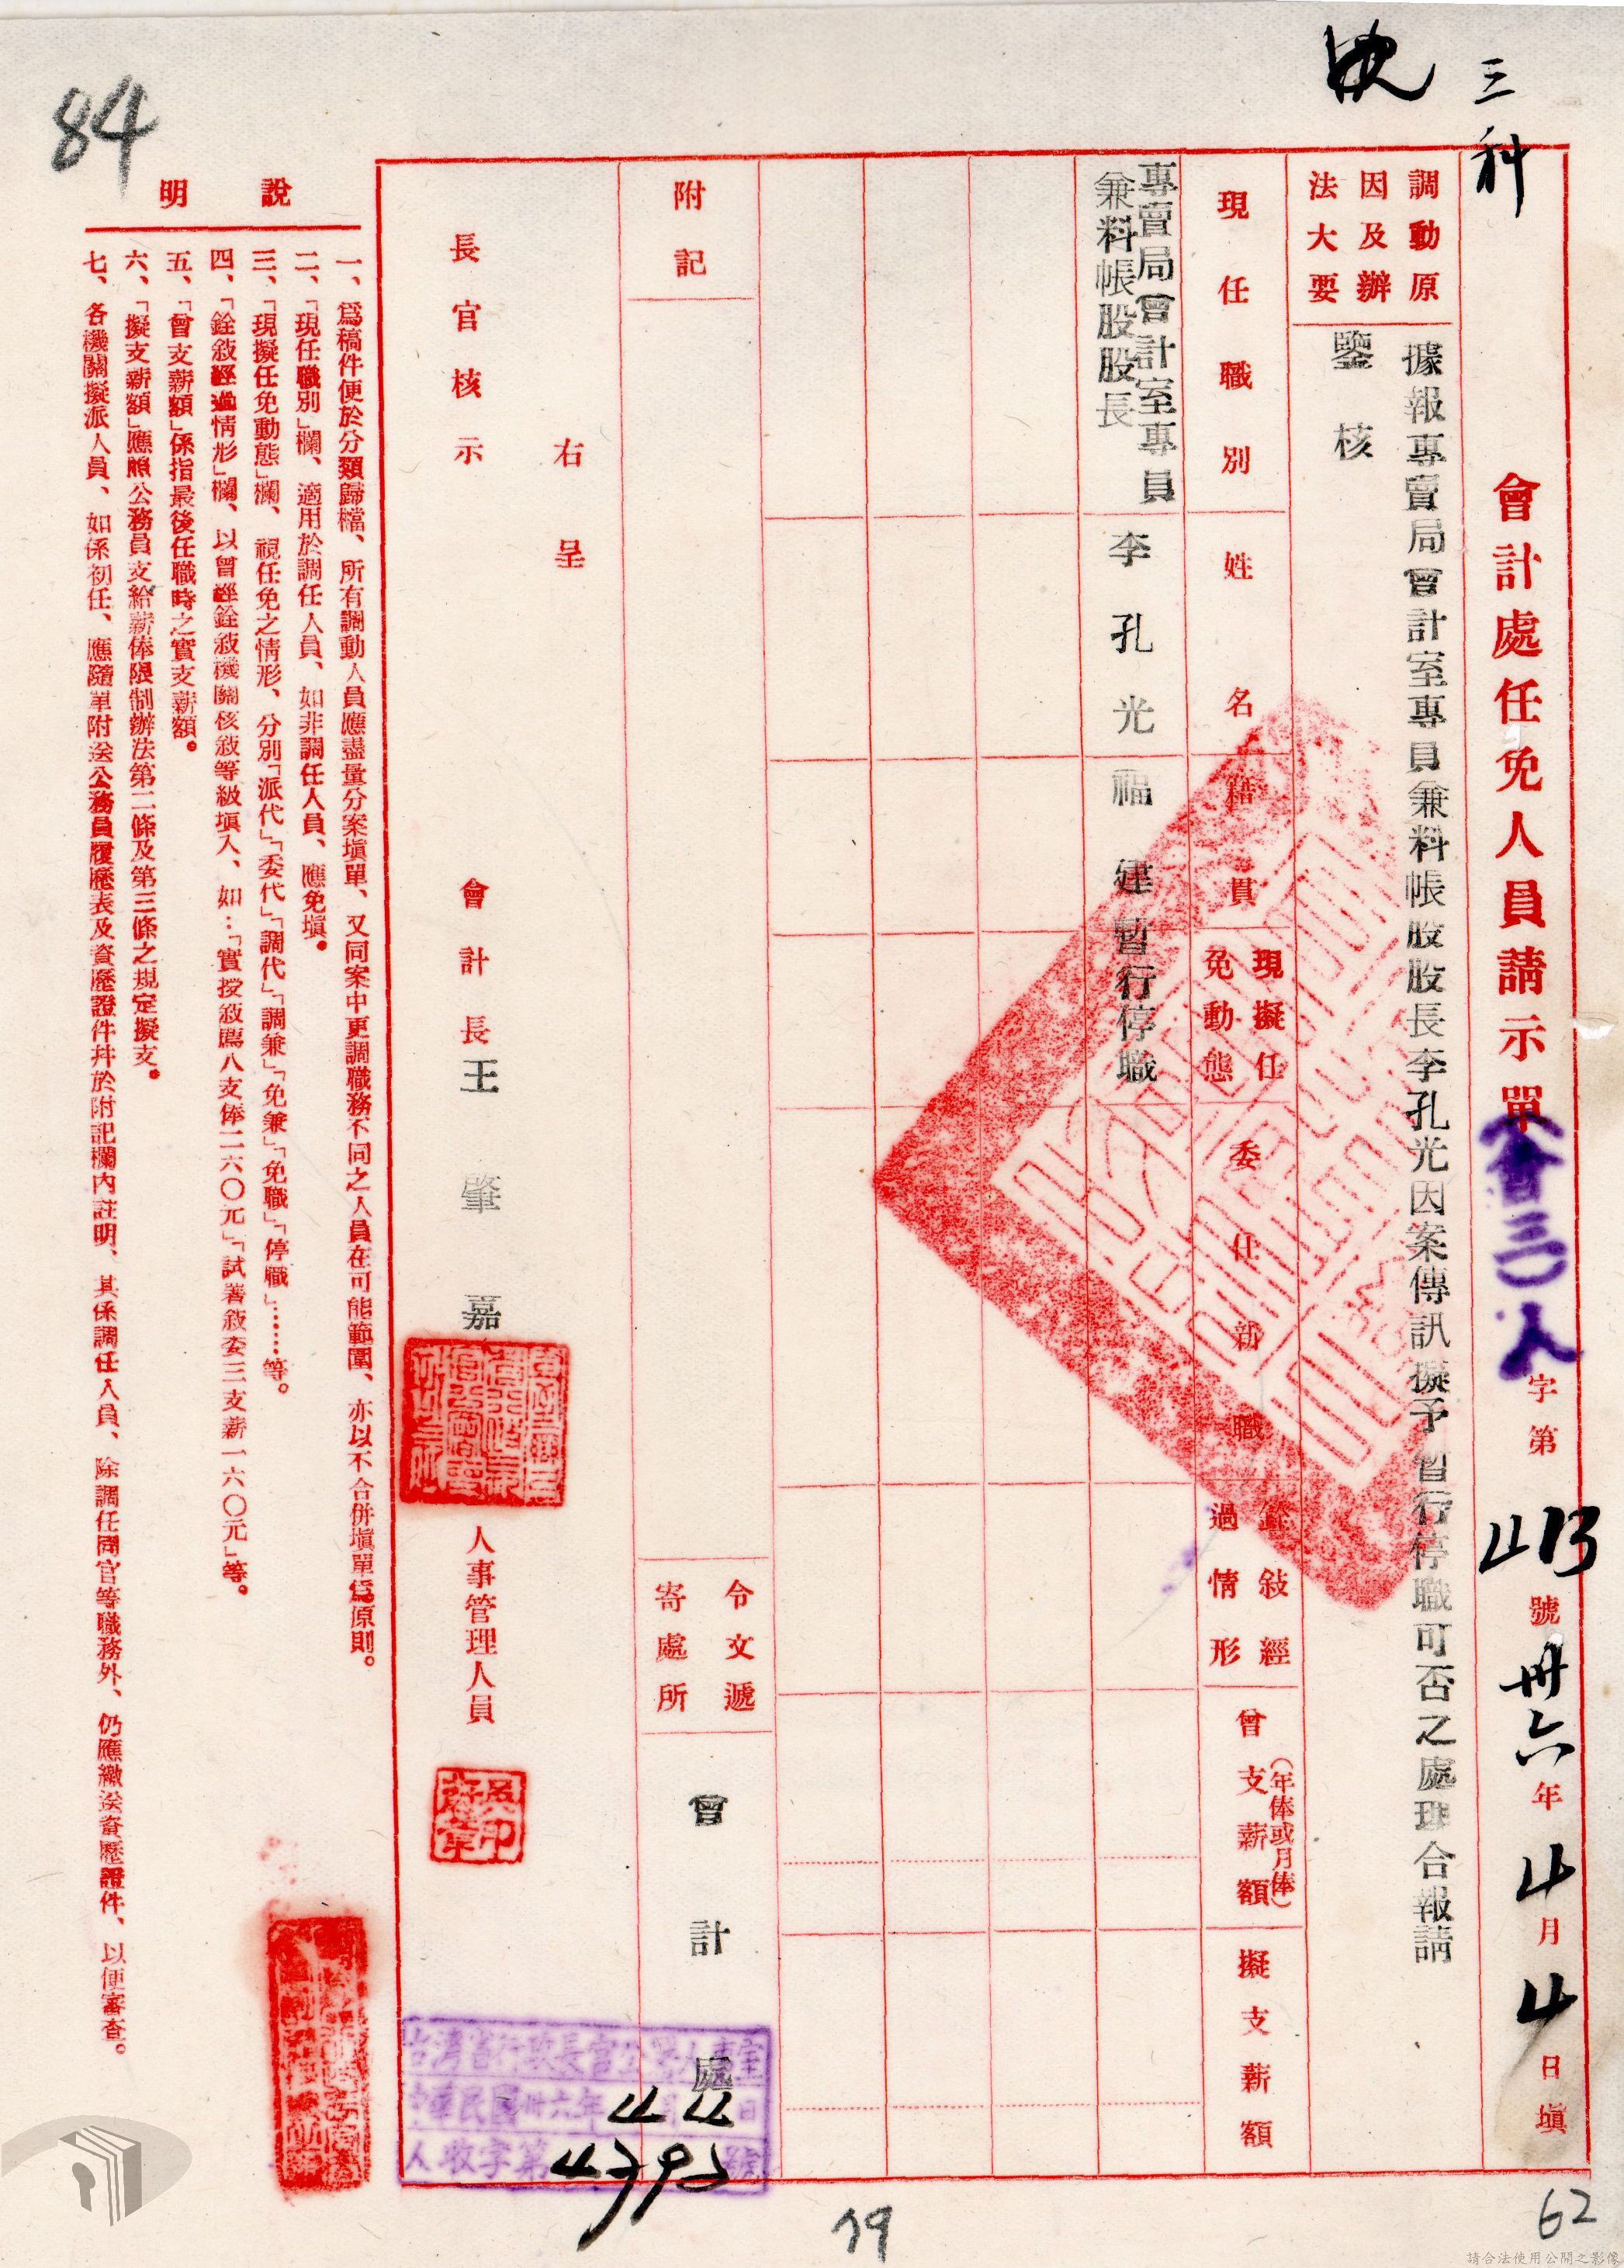 三科
會計處任免人員請示單(會三)人字第413號卅六年4月4日填
調動原因及辦法大要
據報專賣局會計室專員兼料帳股股長李孔光因案傳訊擬予暫行停職可否之處理合報請
鑒核
現任職別
姓名
籍貫
現擬任免動態
委任新職
銓敍經過情形
曾支薪額(年俸或月俸)
擬支薪額
專賣局會計室專員
兼料帳股股長
李孔光
福建
暫行停職
附記
令文遞寄處所
會計處
右呈
長官核示
會計長王肇嘉
人事管理人員
台灣省行政長官公署人事室
中華民國卅六年4月4日
人收字第4395號
說明
一、爲稿件便於分類歸檔、所有調動人員應盡量分案塡單、又同案中更調職務不同之人員在可能範圍、亦以不合併塡單爲原則。
二、「現任職別」欄、適用於調任人員、如非調任人員、應免塡。
三、「現擬任免動態」欄、視任免之情形、分別「派代」「委代」「調代」「調兼」「免兼」「免職」「停職」……等。
四、「銓敍經過情形」欄、以曾經銓敍機關核敍等級塡入、如…「實授敍薦八支俸二六〇元」「試署敍委三支薪一六〇元」等。
五、「曾支薪額」係指最後任職時之實支薪額。
六、「擬支薪額」應照公務員支給薪俸限制辦法第二條及第三條之規定擬支。
七、各機關擬派人員、如係初任、應隨單附送公務員履歷表及資歷證件幷於附記欄內註明、其係調任人員、除調任同官等職務外、仍應繳送資歷證件、以便審查。
84
79
62
請合法使用公開之影像